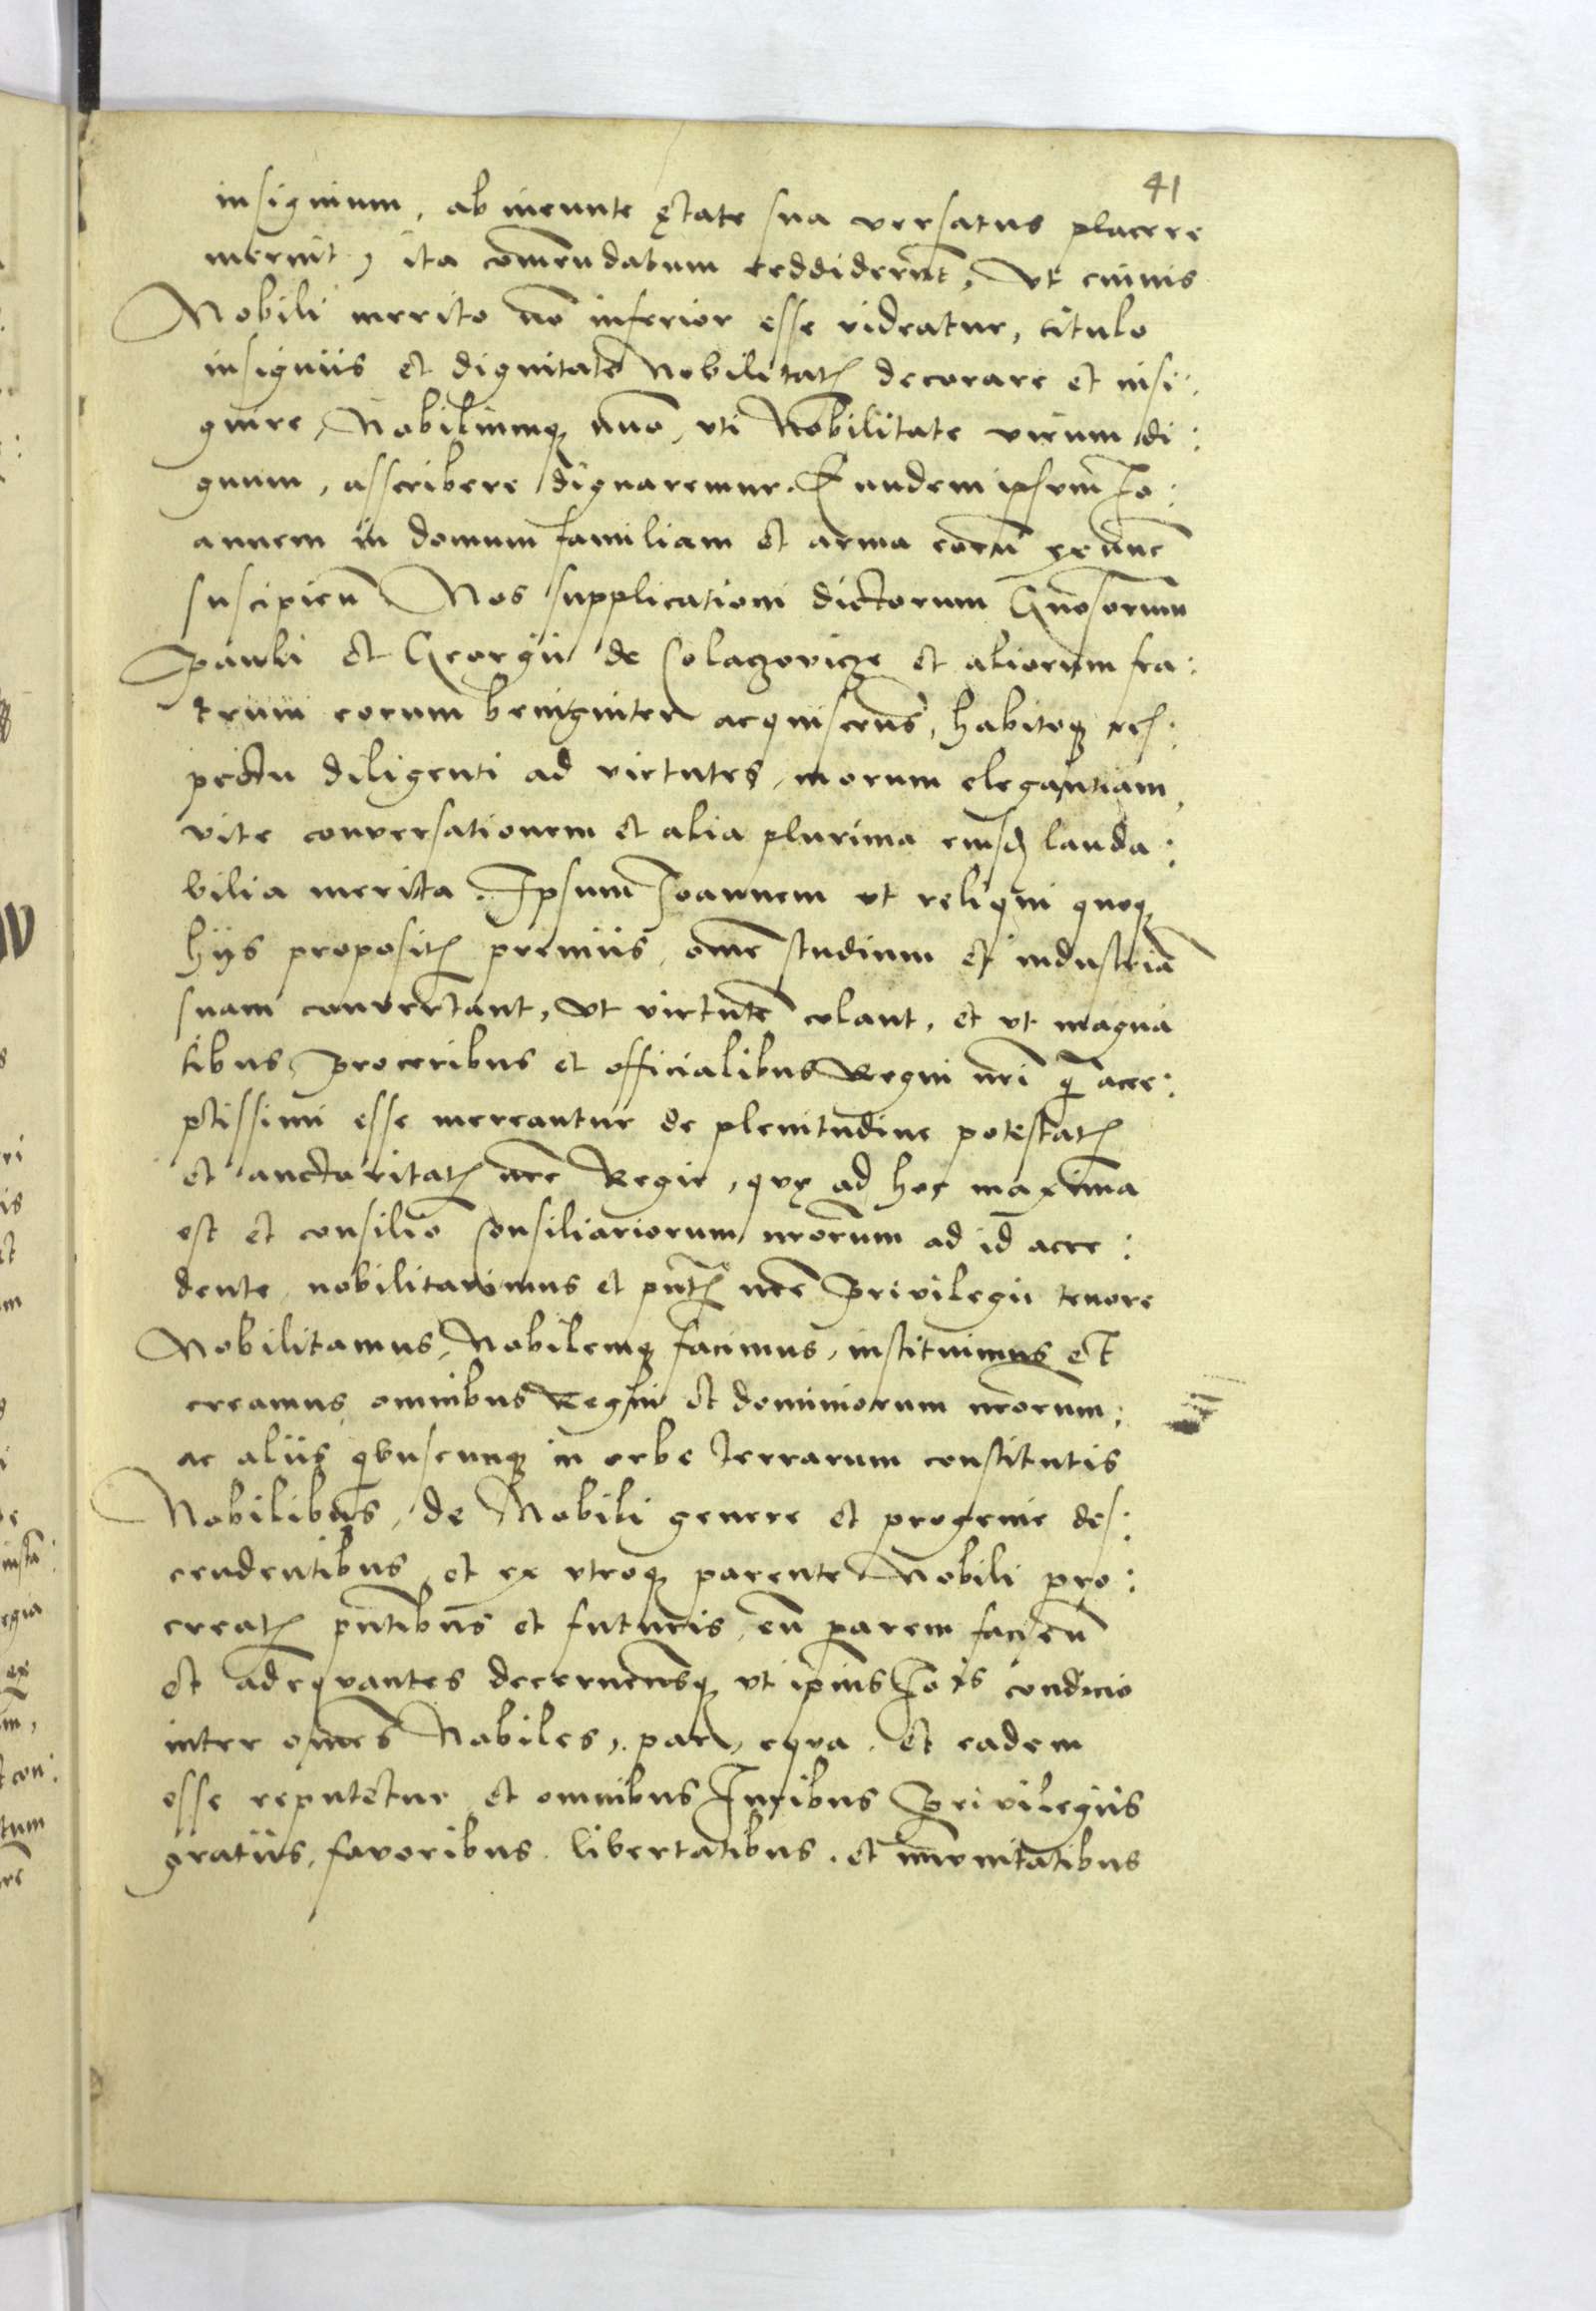 41
insignium, ab ineunte ętate sua versatus placere
meruit, ita com̃endatum reddiderũt, Vt cuiuis
Nobili merito nõ inferior esse videatur, titulo
insigniis et dignitate Nobilitatꝭ decorare et insi:
gnire, Nobiliumqꝫ uti Nobilitate virum di:
gnum, asscribere dignaremur. Eundem ipsum Io:
annem in domum familiam et arma eorũ
suscipieñ Nos supplicationi dictorum Gñosorum
Pauli et Georgii de et aliorum fra:
trum eorum benigniter acquiscen̄s, habitoqꝫ res:
pectu diligenti ad virtutes, morum elegantiam,
vite conversationem et alia plurima eiusdꝭ lauda:
bilia merita. Ipsum Ioannem ut reliqui quoqꝫ
hijs propositꝭ premiis, om̃e studium et industriã
suam convertant, Vt virtutẽ colant, et ut magna
tibus, Proceribus et officialibus Regni nr̃i q̃ acce:
ptissimi esse mereantur de plenitudine potestatꝭ
et auctoritatꝭ nr̃e Regie, quę ad hoc maxima
est et consilio Consiliariorum nr̃orum ad id acce:
dente nobilitavimus et pñtꝭ nr̃e Privilegii tenore
Nobilitamus, Nobilemqꝫ facimus, instituimus et
creamus omnibus Regni et dominiorum nr̃orum,
ac aliis qibuscunqꝫ in orbe terrarum constitutis
Nobilibus, de Nobili genere et progenie des:
cendentibus, et ex utroqꝫ parente Nobili pro:
creatꝭ pñtibus et futuris, eũ parem facieñ
et adequantes decernen̄sqꝫ ut ipius Iõis condicio
inter om̃es Nobiles, par, equa, et eadem
esse reputetur et omnibus Iuribus Privilegiis
gratiis, favoribus, libertatibus, et im̃unitatibus